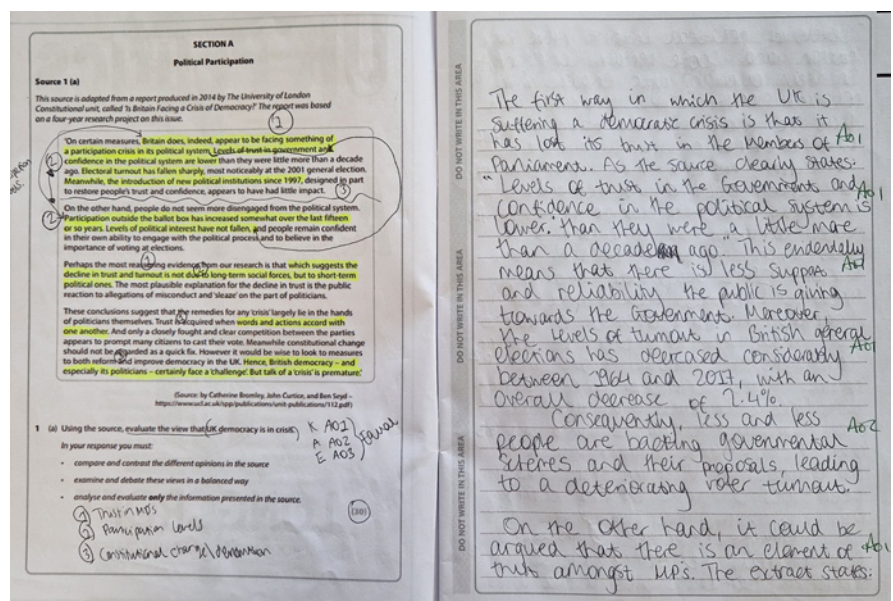 SECTION A
Political Participation
Source 1 (a)
This source is adapted from a report produced in 2014 by The University of London
Constitutional unit, called 'Is Britain Facing a Crisis of Democracy?' The report was based
on a four-year research project on this issue.
1
'On certain measures, Britain does, indeed, appear to be facing something of
a participation crisis in its political system. Levels of trust in government and
confidence in the political system are lower than they were little more than a decade
ago. Electoral turnout has fallen sharply, most noticeably at the 2001 general election.
Meanwhile, the introduction of new political institutions since 1997, designed in part
to restore people's trust and confidence, appears to have had little impact.
2
3
On the other hand, people do not seem more disengaged from the political system.
Participation outside the ballot box has increased somewhat over the last fifteen
or so years. Levels of political interest have not fallen, and people remain confident
in their own ability to engage with the political process and to believe in the
importance of voting at elections.
2
1
Perhaps the most reassuring evidence from our research is that which suggests the
decline in trust and turnout is not due to long-term social forces, but to short-term
political ones. The most plausible explanation for the decline in trust is the public
reaction to allegations of misconduct and 'sleaze' on the part of politicians.
These conclusions suggest that the remedies for any 'crisis' largely lie in the hands
of politicians themselves. Trust is acquired when words and actions accord with
one another. And only a closely fought and clear competition between the parties
appears to prompt many citizens to cast their vote. Meanwhile constitutional change
should not be regarded as a quick fix. However it would be wise to look to measures
to both reform and improve democracy in the UK. Hence, British democracy – and
especially its politicians – certainly face a 'challenge'. But talk of a 'crisis' is premature.'
(Source: by Catherine Bromley, John Curtice, and Ben Seyd –
https://www.ucl.ac.uk/spp/publications/unit-publications/112.pdf)
1 (a) Using the source, evaluate the view that UK democracy is in crisis.
K AO1
A AO2
E AO3
Equal
In your response you must:
• compare and contrast the different opinions in the source
• examine and debate these views in a balanced way
• analyse and evaluate only the information presented in the source.
(30)
1 Trust in MPs
2 Participation levels
3 Constitutional change/
DO NOT WRITE IN THIS AREA
DO NOT WRITE IN THIS AREA
DO NOT WRITE IN THIS AREA
The first way in which the UK is
suffering a democratic crisis is that it
has lost its trust in the Members of AO1
Parliament. As the source clearly states:
"Levels of trust in the Governments and AO1
confidence in the political system is
lower than they were a little more
than a decade ago." This evidentally
means that there is less support AO2
and reliability the public is giving
towards the Government. Moreover,
the levels of turnout in British general
elections has decreased considerably AO1
between 1964 and 2017, with an
overall decrease of 7.4%.
Consequently, less and less AO2
people are backing governmental
schemes and their proposals, leading
to a deteriorating voter turnout.
On the other hand, it could be
argued that there is an element of AO1
trust amongst MP's. The extract states: